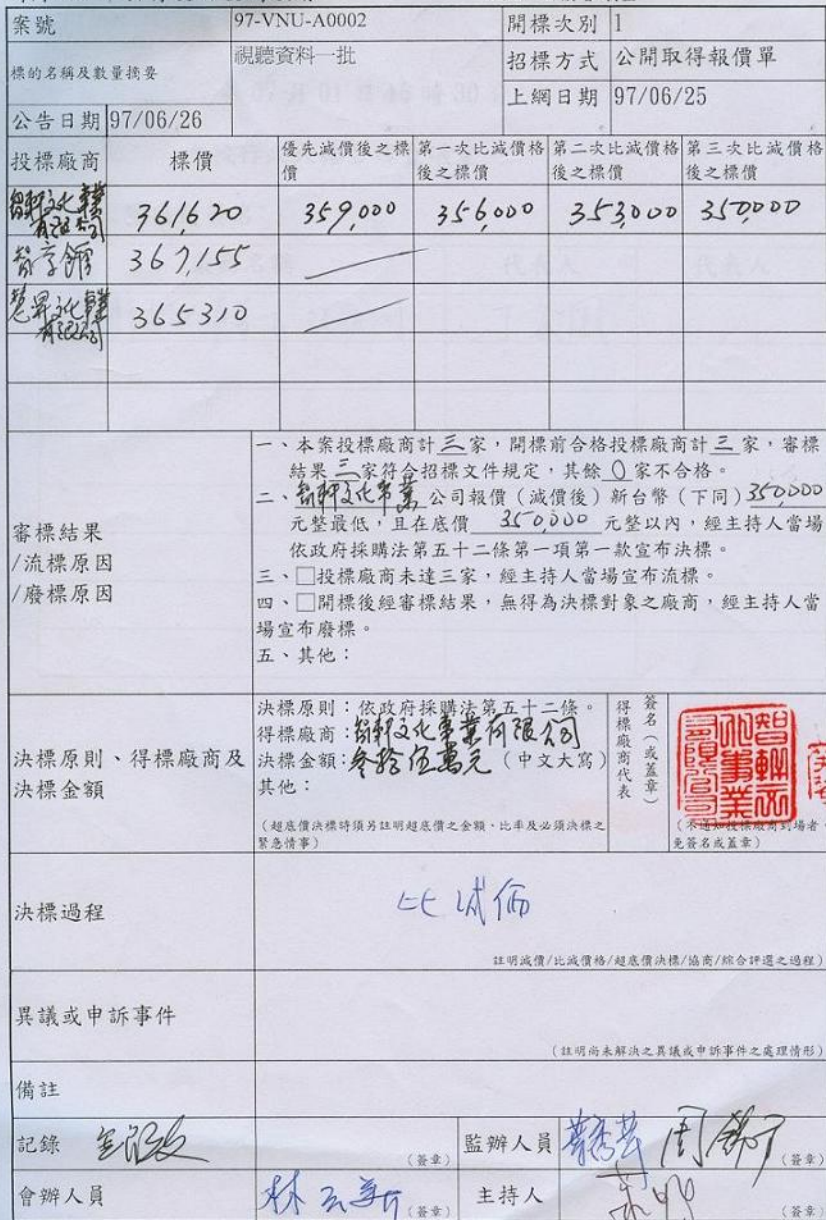 案號 97-VNU-A0002 開標次別 1
標的名稱及數量摘要 視聽資料一批 招標方式 公開取得報價單
上網日期 97/06/25
公告日期 97/06/26
投標廠商 標價 優先減價後之標價 第一次比減價格後之標價 第二次比減價格後之標價 第三次比減價格後之標價
智軒文化事業有限公司 361,620 359,000 356,000 353,000 350,000
367,155
慧昇文化事業有限公司 365310
審標結果
/流標原因
/廢標原因
一、本案投標廠商計三家,開標前合格投標廠商計三家,審標
結果三家符合招標文件規定,其餘0家不合格。
二、智軒文化事業公司報價(減價後)新台幣(下同)350,000
元整最低,且在底價 350,000 元整以內,經主持人當場
依政府採購法第五十二條第一項第一款宣布決標。
三、□投標廠商未達三家,經主持人當場宣布流標。
四、□開標後經審標結果,無得為決標對象之廠商,經主持人當
場宣布廢標。
五、其他:
決標原則、得標廠商及
決標金額
決標原則:依政府採購法第五十二條。
得標廠商:智軒文化事業有限公司
決標金額:參拾伍萬元(中文大寫)
其他:
(超底價決標時須另註明超底價之金額、比率及必須決標之
緊急情事)
得標廠商代表
簽名(或蓋章)
智軒文化事業有限公司
(不通知投標廠商到場者,
免簽名或蓋章)
決標過程 比減價
註明減價/比減價格/超底價決標/協商/綜合評選之過程)
異議或申訴事件
(註明尚未解決之異議或申訴事件之處理情形)
備註
記錄 (簽章) 監辦人員 (簽章)
會辦人員 (簽章) 主持人 (簽章)